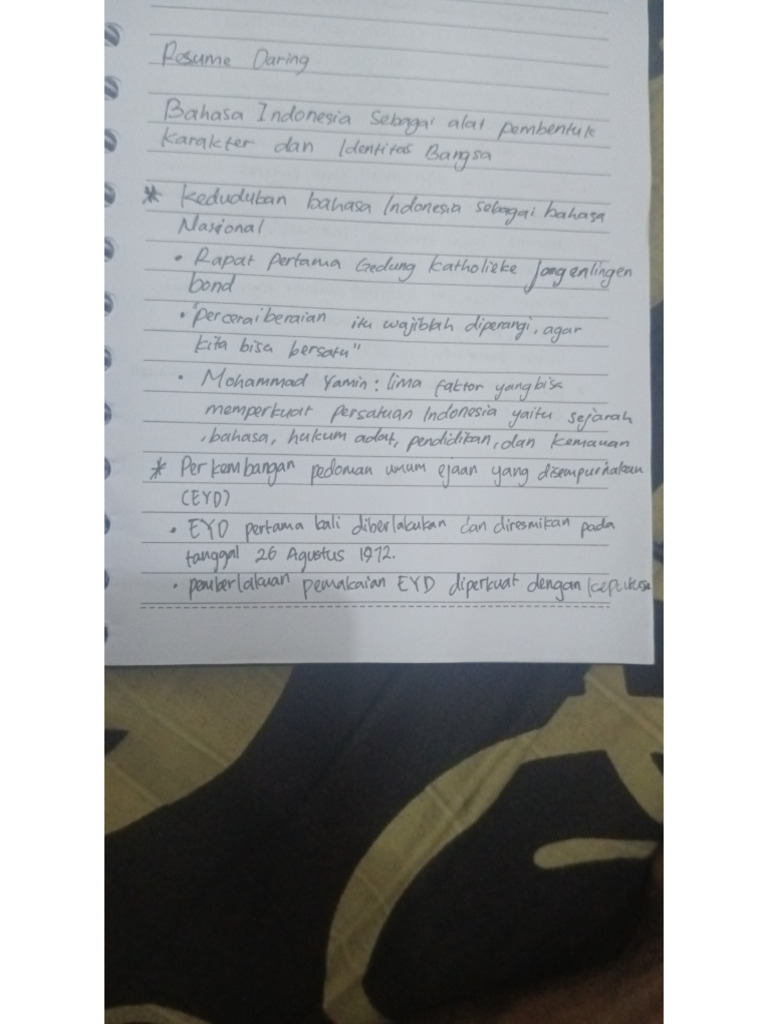 Resume Daring
Bahasa Indonesia Sebagai alat pembentuk
Karakter dan Identitas Bangsa
* Kedudukan bahasa Indonesia sebagai bahasa
Nasional
• Rapat Pertama Gedung Katholieke Jongenlingen
bond
• "perceraiberaian itu wajiblah diperangi, agar
kita bisa bersatu"
• Mohammad Yamin : lima faktor yang bisa
memperkuat persatuan Indonesia yaitu sejarah
, bahasa, hukum adat, pendidikan, dan kemauan
* Perkembangan pedoman umum ejaan yang disempurnakan
(EYD)
• EYD pertama kali diberlakukan dan diresmikan pada
tanggal 26 Agustus 1972.
• pemberlakuan pemakaian EYD diperkuat dengan